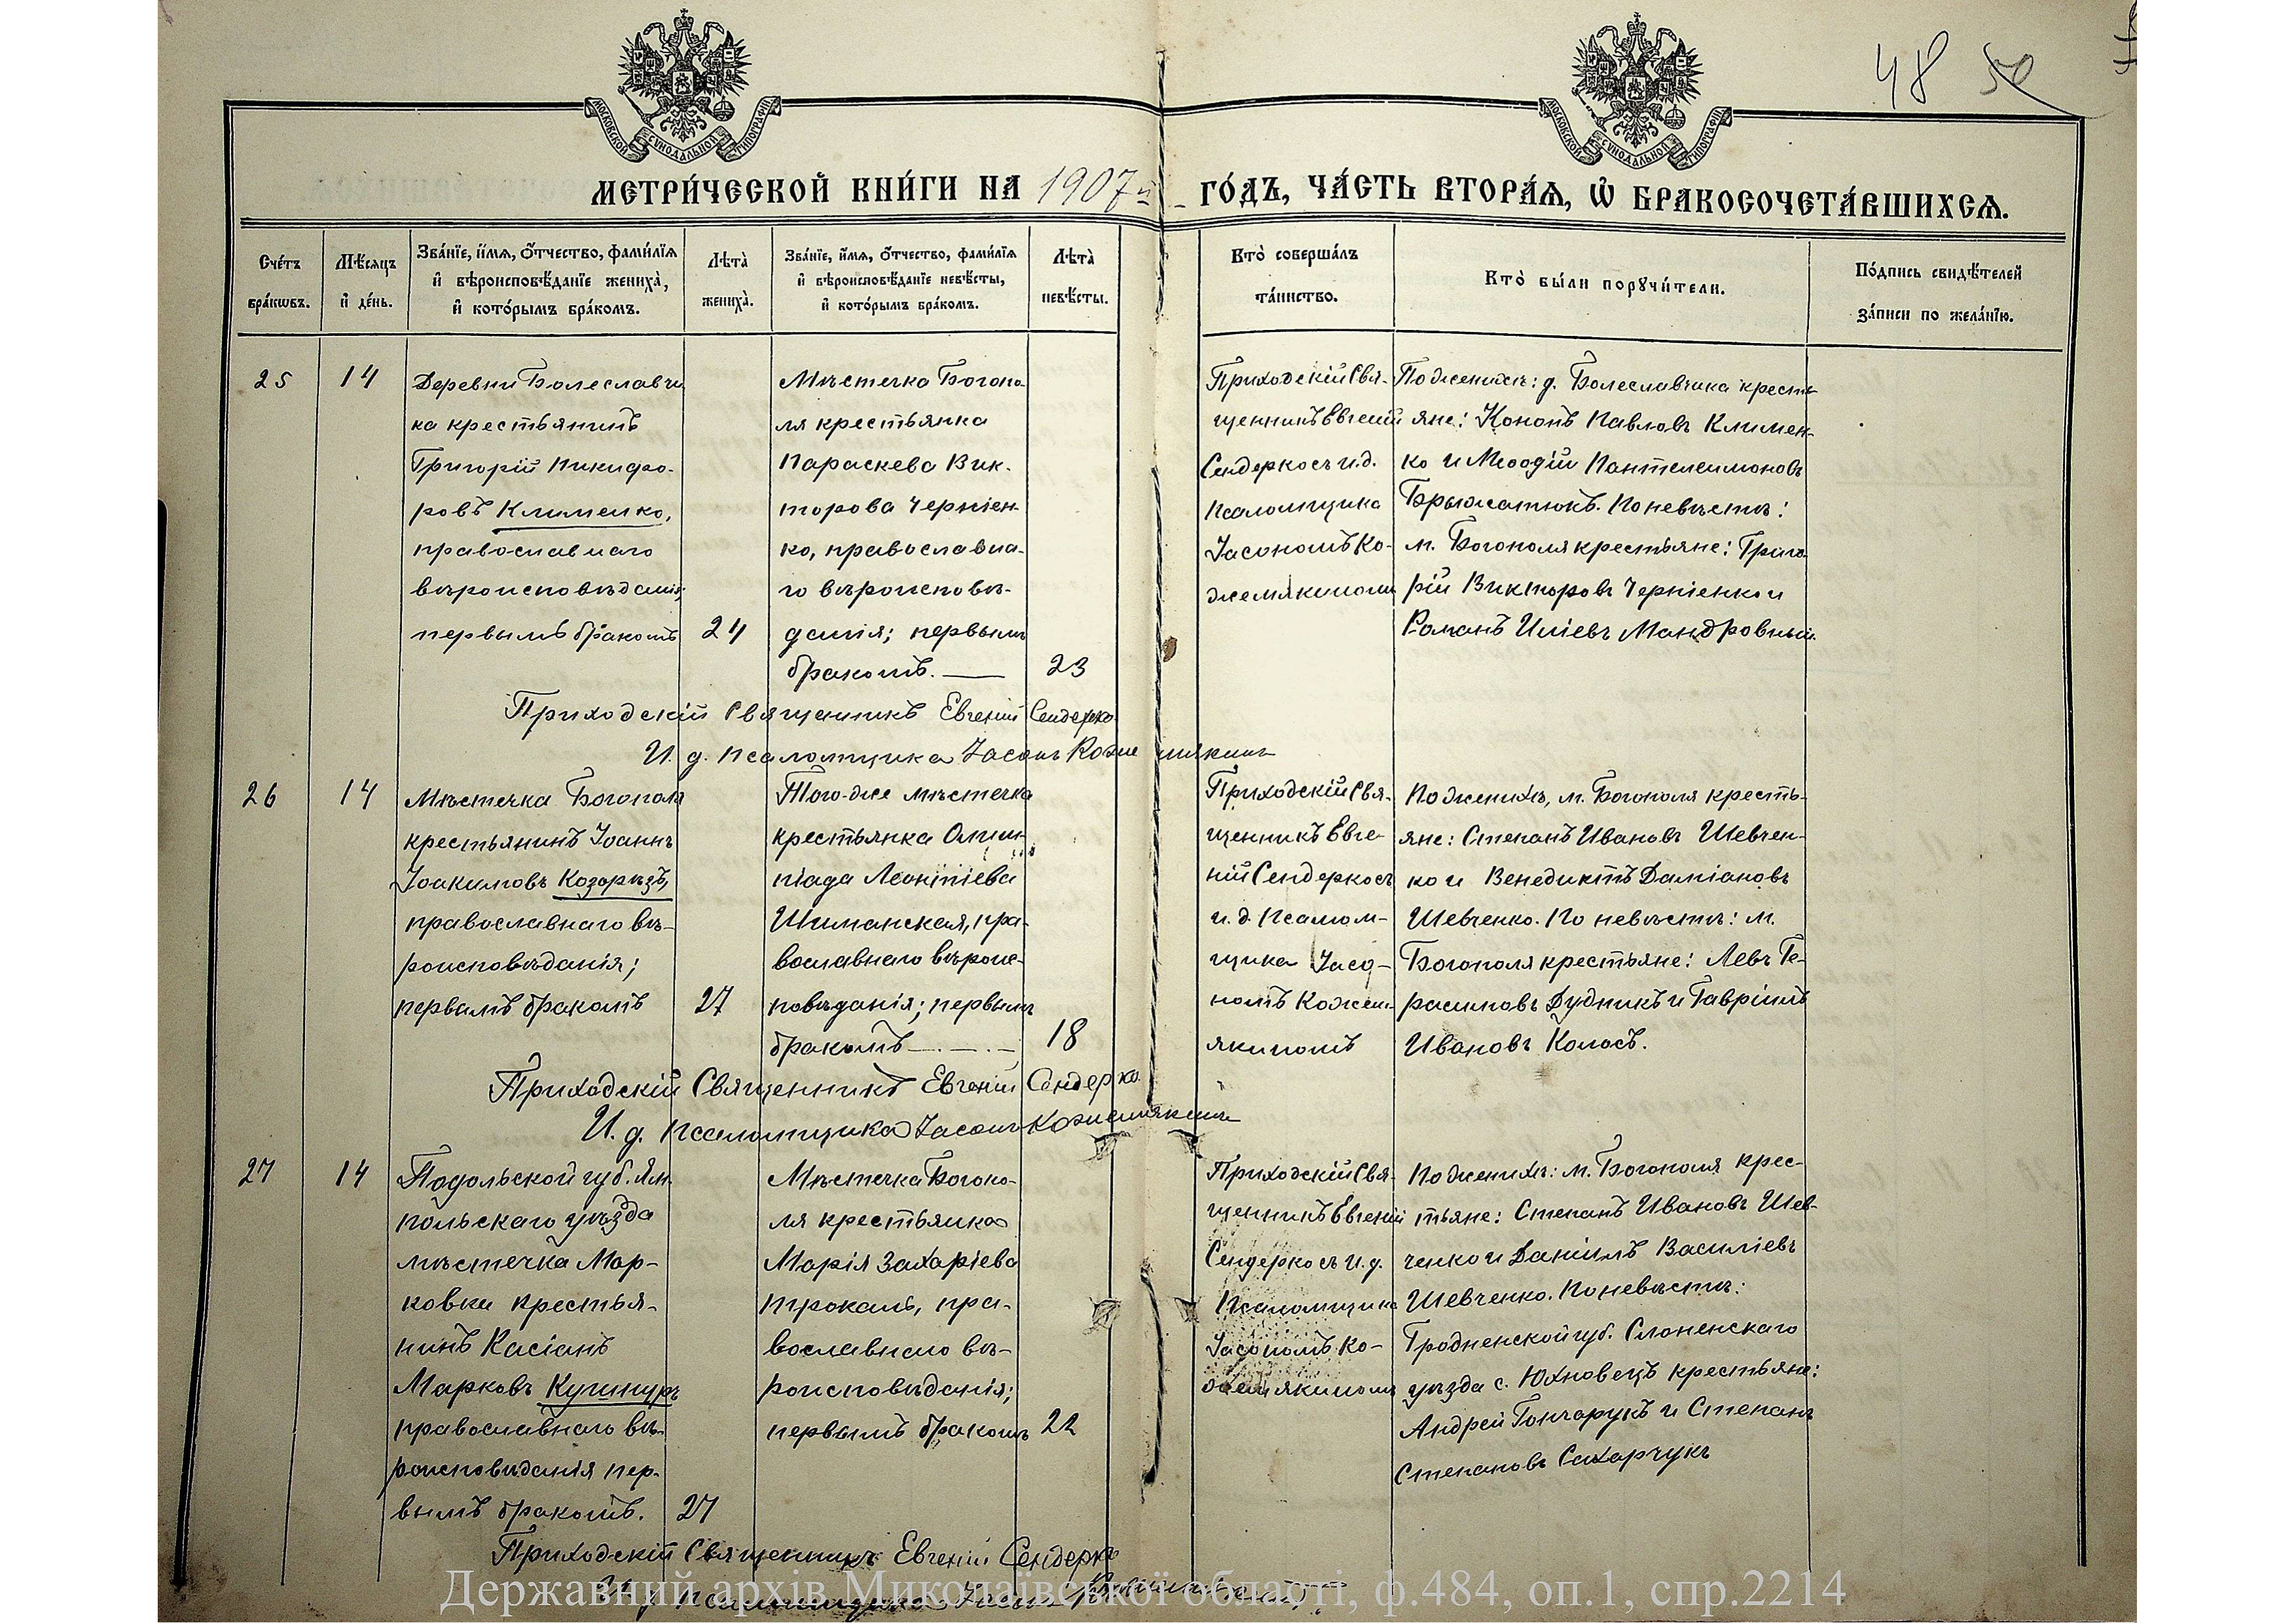 МОСКОВСКОЙ СѴНОДАЛЬНОЙ ТИПОГРАФІИ
МОСКОВСКОЙ СѴНОДАЛЬНОЙ ТИПОГРАФІИ
48 50
МЕТРИ́ЧЕСКОЙ КНИ́ГИ НА 1907й ГО́ДЪ, ЧА́СТЬ ВТОРА́Ѧ, Ѡ҆ БРАКОСОЧЕТА́ВШИХСѦ.
Сче́тъ бра́кѡвъ.
Мѣ́сяцъ и҆ де́нь.
Зва́нїе, и҆́мѧ, ѻ҆́тчество, фами́лїѧ и҆ вѣроисповѣ́данїе жениха̀, и҆ кото́рымъ бра́комъ.
Лѣта̀ жениха̀.
Зва́нїе, и҆́мѧ, ѻ҆́тчество, фами́лїѧ и҆ вѣроисповѣ́данїе невѣ́сты, и҆ кото́рымъ бра́комъ.
Лѣта̀ невѣ́сты.
Кто̀ соверша́лъ та́инство.
Кто̀ бы́ли порꙋчи́тели.
По́дпись свидѣ́телей за́писи по жела́нїю.
25
14
Деревни Болеславчи
ка крестьянинъ
Григорій Никифо-
ровъ Клименко,
православнаго
вѣроисповѣданія;
первымъ бракомъ
24
Мѣстечка Богопо
ля крестьянка
Параскева Вик-
торова Черніен
ко, православна-
го вѣроисповѣ-
данія; первымъ
бракомъ. —
23
Приходскій Свя-
щенникъ Евгеній
Сендерко съ и.д.
псаломщика
Іасономъ Ко-
жемякиномъ
По женихѣ: д. Болеславчика кресть
яне: Кононъ Павловъ Климен-
ко и Меѳодій Пантелеимоновъ
Брыжатюкъ. По невѣстѣ:
м. Богополя крестьяне: Григо
рій Викторовъ Черніенко и
Романъ Иліевъ Мандровный.
Приходскій Священникъ Евгеній Сендерко
И. д. псаломщика Іасонъ Кожемякинъ
26
14
Мѣстечка Богополя
крестьянинъ Іоаннъ
Іоакимовъ Козорѣзъ,
православнаго вѣ-
роисповѣданія;
первымъ бракомъ
27
Того-же мѣстечка
крестьянка Олим
піада Леонтіева
Шиманская, пра-
вославнаго вѣроис-
повѣданія; первымъ
бракомъ — . —
18
Приходскій Свя-
щенникъ Евге-
ній Сендерко съ
и.д. псалом-
щика Іасо-
номъ Кожем-
якиномъ
По женихѣ, м. Богополя кресть-
яне: Степанъ Ивановъ Шевчен-
ко и Венедиктъ Даміановъ
Шевченко. По невѣстѣ: м.
Богополя крестьяне: Левъ Ге-
расимовъ Дудникъ и Гавріилъ
Ивановъ Колосъ.
Приходскій Священникъ Евгеній Сендерко
И. д. псаломщика Іасонъ Кожемякинъ
27
14
Подольской губ. Ям
польскаго уѣзда
мѣстечка Мар-
ковки крестья-
нинъ Касіанъ
Марковъ
православнаго вѣ-
роисповѣданія пер-
вымъ бракомъ.
27
Мѣстечка Богопо-
ля крестьянка
Марія Захаріева
пра-
вославнаго вѣ-
роисповѣданія;
первымъ бракомъ
22
Приходскій Свя-
щенникъ Евгеній
Сендерко съ и.д.
псаломщика
Іасономъ Ко-
жемякиномъ
По женихѣ: м. Богополя крес-
тьяне: Степанъ Ивановъ Шев-
ченко и Даніилъ Василіевъ
Шевченко. По невѣстѣ:
Гродненской губ. Слоненскаго
уѣзда с. Юхновецъ крестьяне:
Андрей Гончарукъ и Степанъ
Степановъ Сахарчукъ
Приходскій Священникъ Евгеній Сендерко
И. д. псаломщика Іасонъ
Державний архів Миколаївської області, ф.484, оп.1, спр.2214